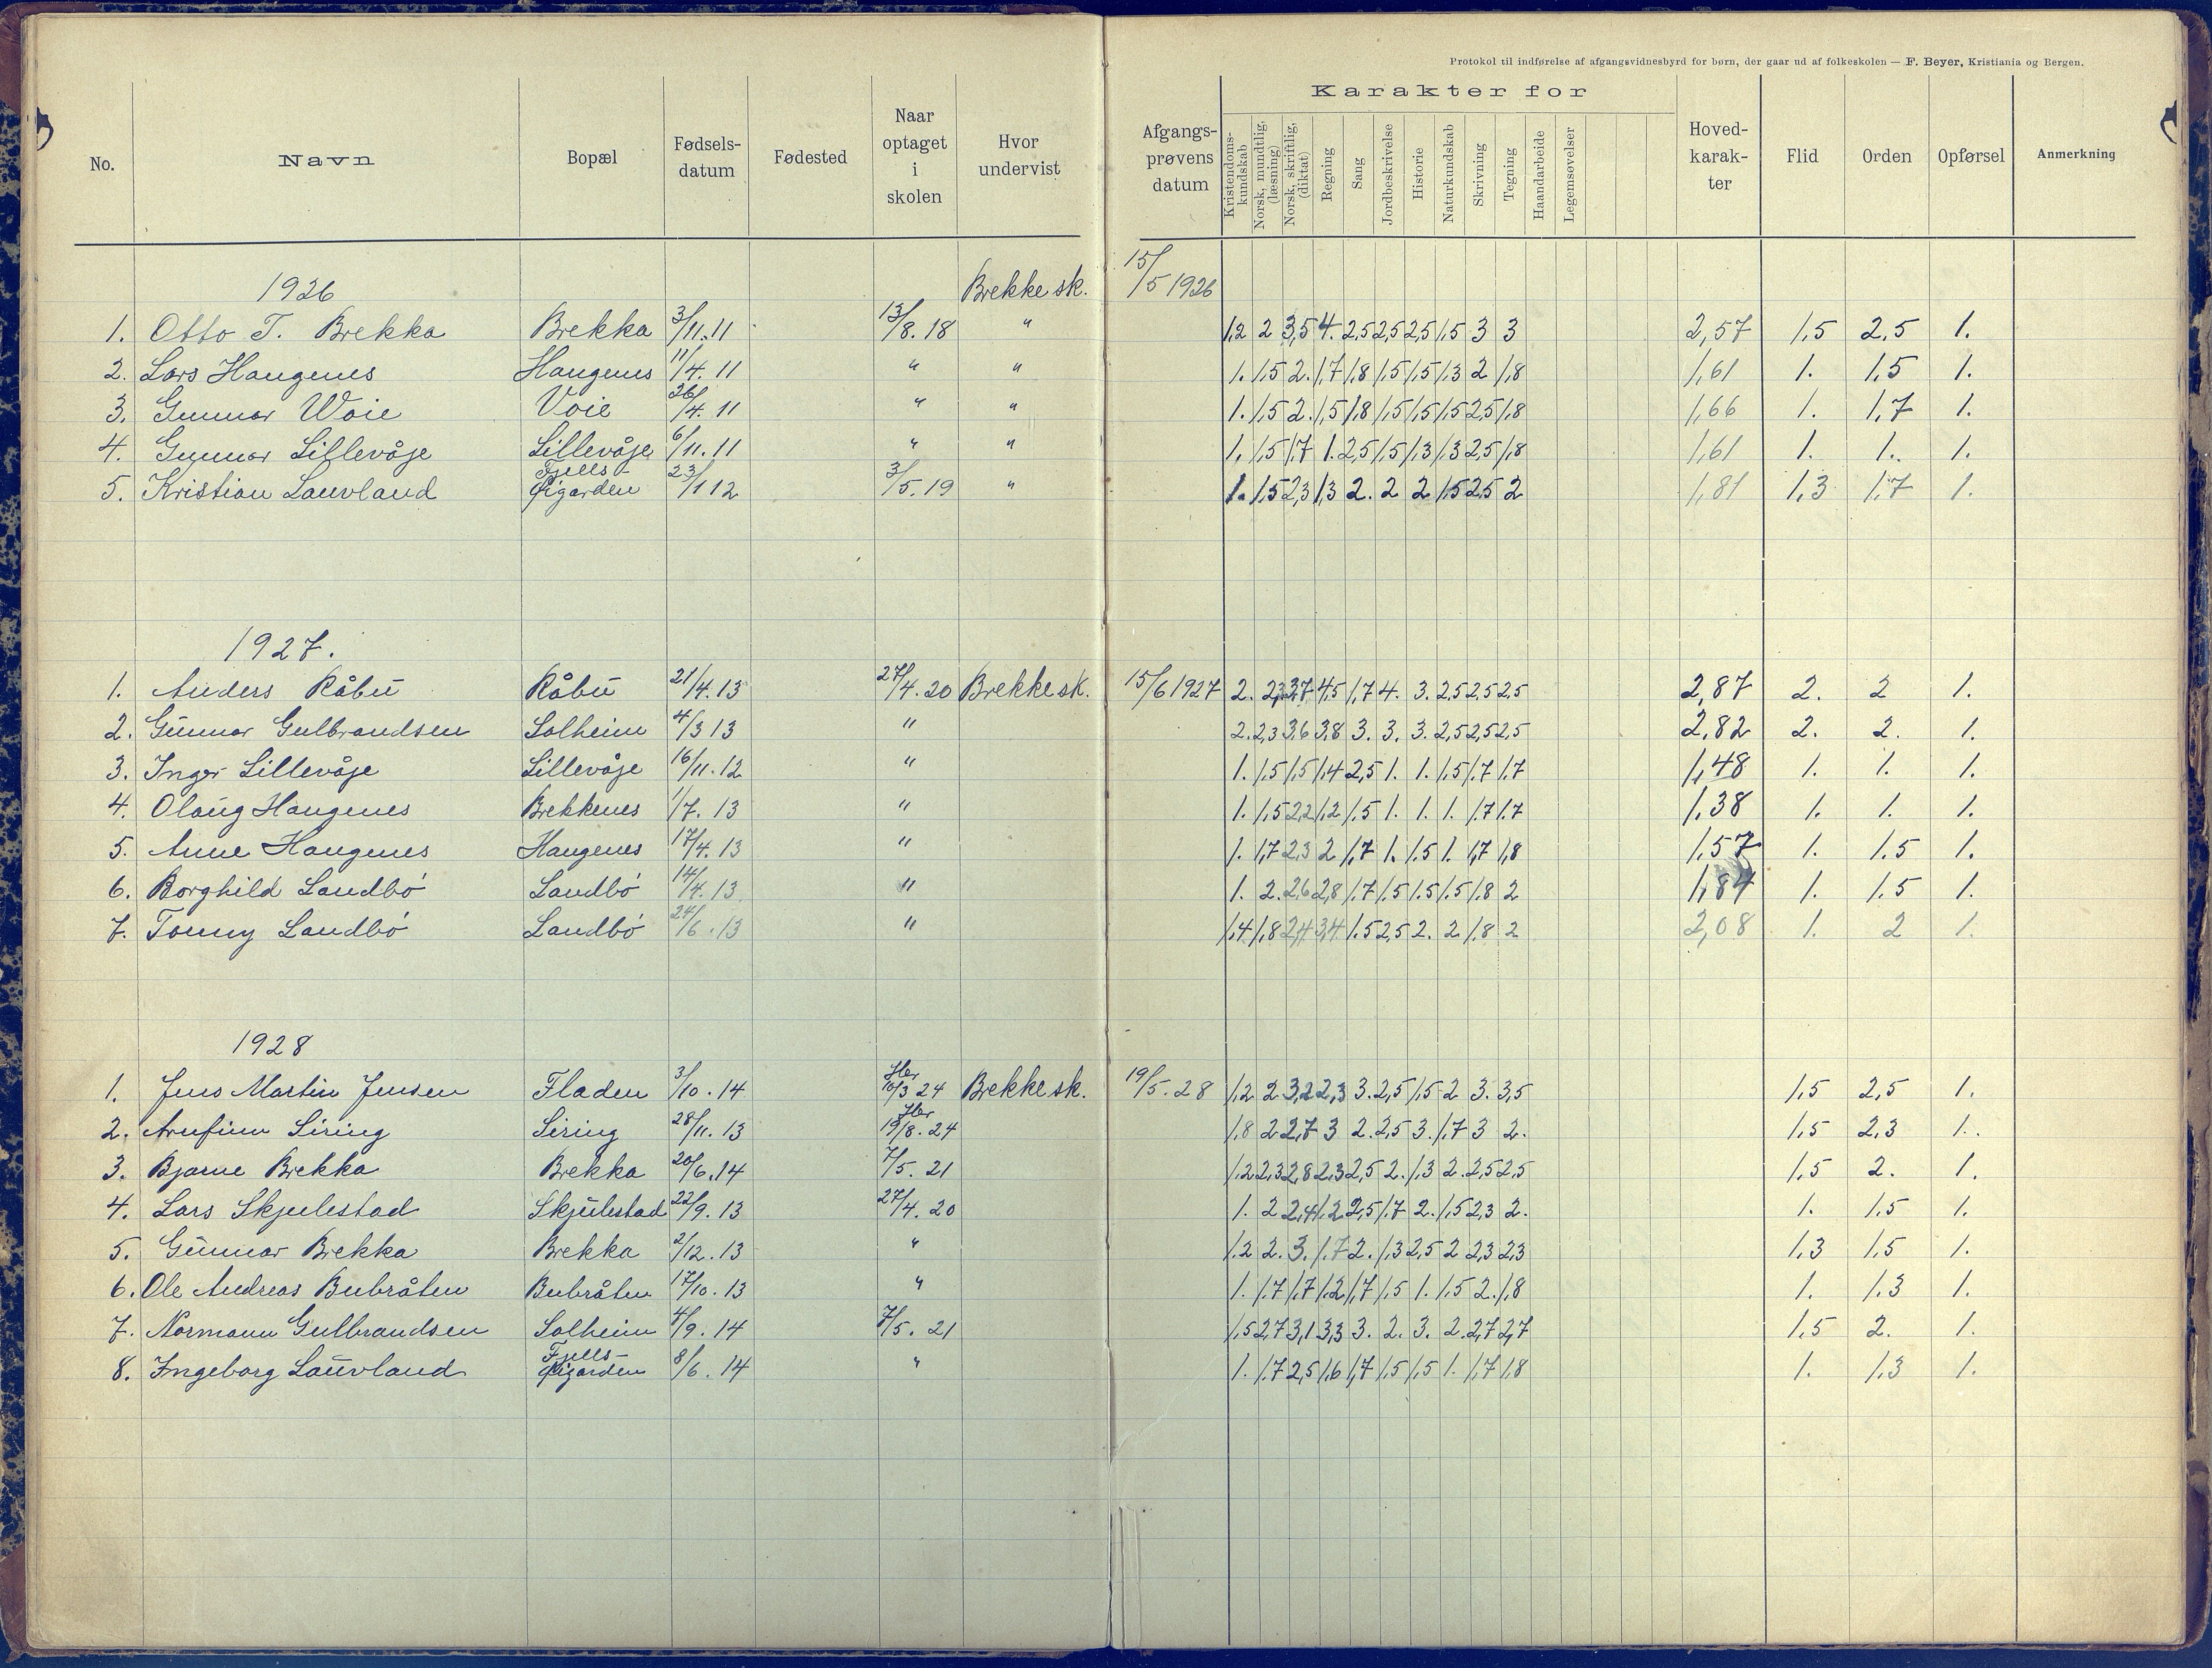 Protokol til indførelse af afgangsvidnesbyrd for børn, der gaar ud af folkeskolen — F. Beyer, Kristiania og Bergen.
No. Navn Bopæl Fødsels-datum Fødested Naar optaget i skolen Hvor undervist Afgangs-prøvens datum Karakter for Kristendoms-kundskab Norsk, mundtlig, (læsning) Norsk, skriftlig, (diktat) Regning Sang Jordbeskrivelse Historie Naturkundskab Skrivning Tegning Haandarbeide Legemsøvelser Hoved-karak-ter Flid Orden Opførsel Anmerkning
1926 Brekke sk. 15/5 1926
1. Otto T. Brekka Brekka 3/11.11 13/8.18 " 1,2 2 3,5 4. 2,5 2,5 2,5 1,5 3 3 2,57 1,5 2,5 1.
2. Lars Haugenes Haugenes 11/4.11 " " 1. 1,5 2. 1,7 1,8 1,5 1,5 1,3 2 1,8 1,61 1. 1,5 1.
3. Gunnar Woie Voie 26/4.11 " " 1. 1,5 2. 1,5 1,8 1,5 1,5 1,5 2,5 1,8 1,66 1. 1,7 1.
4. Gunnar Lillevåje Lillevåje 6/11.11 " " 1. 1,5 1,7 1. 2,5 1,5 1,3 1,3 2,5 1,8 1,61 1. 1. 1.
5. Kristian Lauvland Fjells- 23/1 12 3/5.19 " 1. 1,5 2,3 1,3 2. 2 2 1,5 2,5 2 1,81 1,3 1,7 1.
1927.
1. Anders Råbu Råbu 21/4.13 27/4.20 Brekke sk. 15/6 1927 2. 2,3 3,7 4,5 1,7 4. 3. 2,5 2,5 2,5 2,87 2. 2 1.
2. Gunnar Gulbrandsen Solheim 4/3 13 " 2. 2,3 3,6 3,8 3. 3. 3. 2,5 2,5 2,5 2,82 2. 2. 1.
3. Inger Lillevåje Lillevåje 16/11.12 " 1. 1,5 1,5 1,4 2,5 1. 1. 1,5 1,7 1,7 1,48 1. 1. 1.
4. Olaug Haugenes Brekkenes 1/7.13 " 1. 1,5 2,2 1,2 1,5 1. 1. 1. 1,7 1,7 1,38 1. 1. 1.
5. Anne Haugenes Haugenes 17/4.13 " 1. 1,7 2,3 2 1,7 1. 1.5 1. 1,7 1,8 1,57 1. 1.5 1.
6. Borghild Landbö Landbö 14/4.13 " 1. 2. 2,6 2,8 1,7 1,5 1.5 1,5 1,8 2 1,84 1. 1.5 1.
7. Tonny Landbö Landbö 24/6.13 " 1,4 1,8 2,4 3,4 1.5 2,5 2. 2 1,8 2 2,08 1. 2 1.
1928
1. Jens Martin Jensen Fladen 3/10.14 Her 10/3 24 Brekke sk. 19/5.28 1,2 2 3,2 2,3 3. 2,5 1,5 2 3. 3,5 1,5 2,5 1.
2. Arnfinn Siring Siring 28/11.13 Her 19/8.24 1,8 2 2,7 3 2. 2,5 3. 1,7 3 2. 1,5 2,3 1.
3. Bjarne Brekka Brekka 20/6.14 7/5.21 1,2 2,3 2,8 2,3 2,5 2. 1,3 2. 2,5 2,5 1,5 2. 1.
4. Lars Skjulestad Skjulestad 22/9.13 27/4.20 1. 2 2,4 1,2 2,5 1,7 2. 1,5 2,3 2. 1. 1,5 1.
5. Gunnar Brekka Brekka 2/12.13 " 1,2 2. 3. 1,7 2. 1,3 2,5 2 2,3 2,3 1,3 1,5 1.
6. Ole Andreas Bubråten Bubråten 17/10.13 " 1. 1,7 1,7 1,2 1,7 1,5 1. 1,5 2. 1,8 1. 1,3 1.
7. Normann Gulbrandsen Solheim 4/9.14 7/5.21 1,5 2,7 3,1 3,3 3. 2. 3. 2. 2,7 2,7 1,5 2. 1.
8. Ingeborg Lauvland Fjells- 8/6.14 " 1. 1,7 2,5 1,6 1,7 1,5 1,5 1. 1,7 1,8 1. 1,3 1.